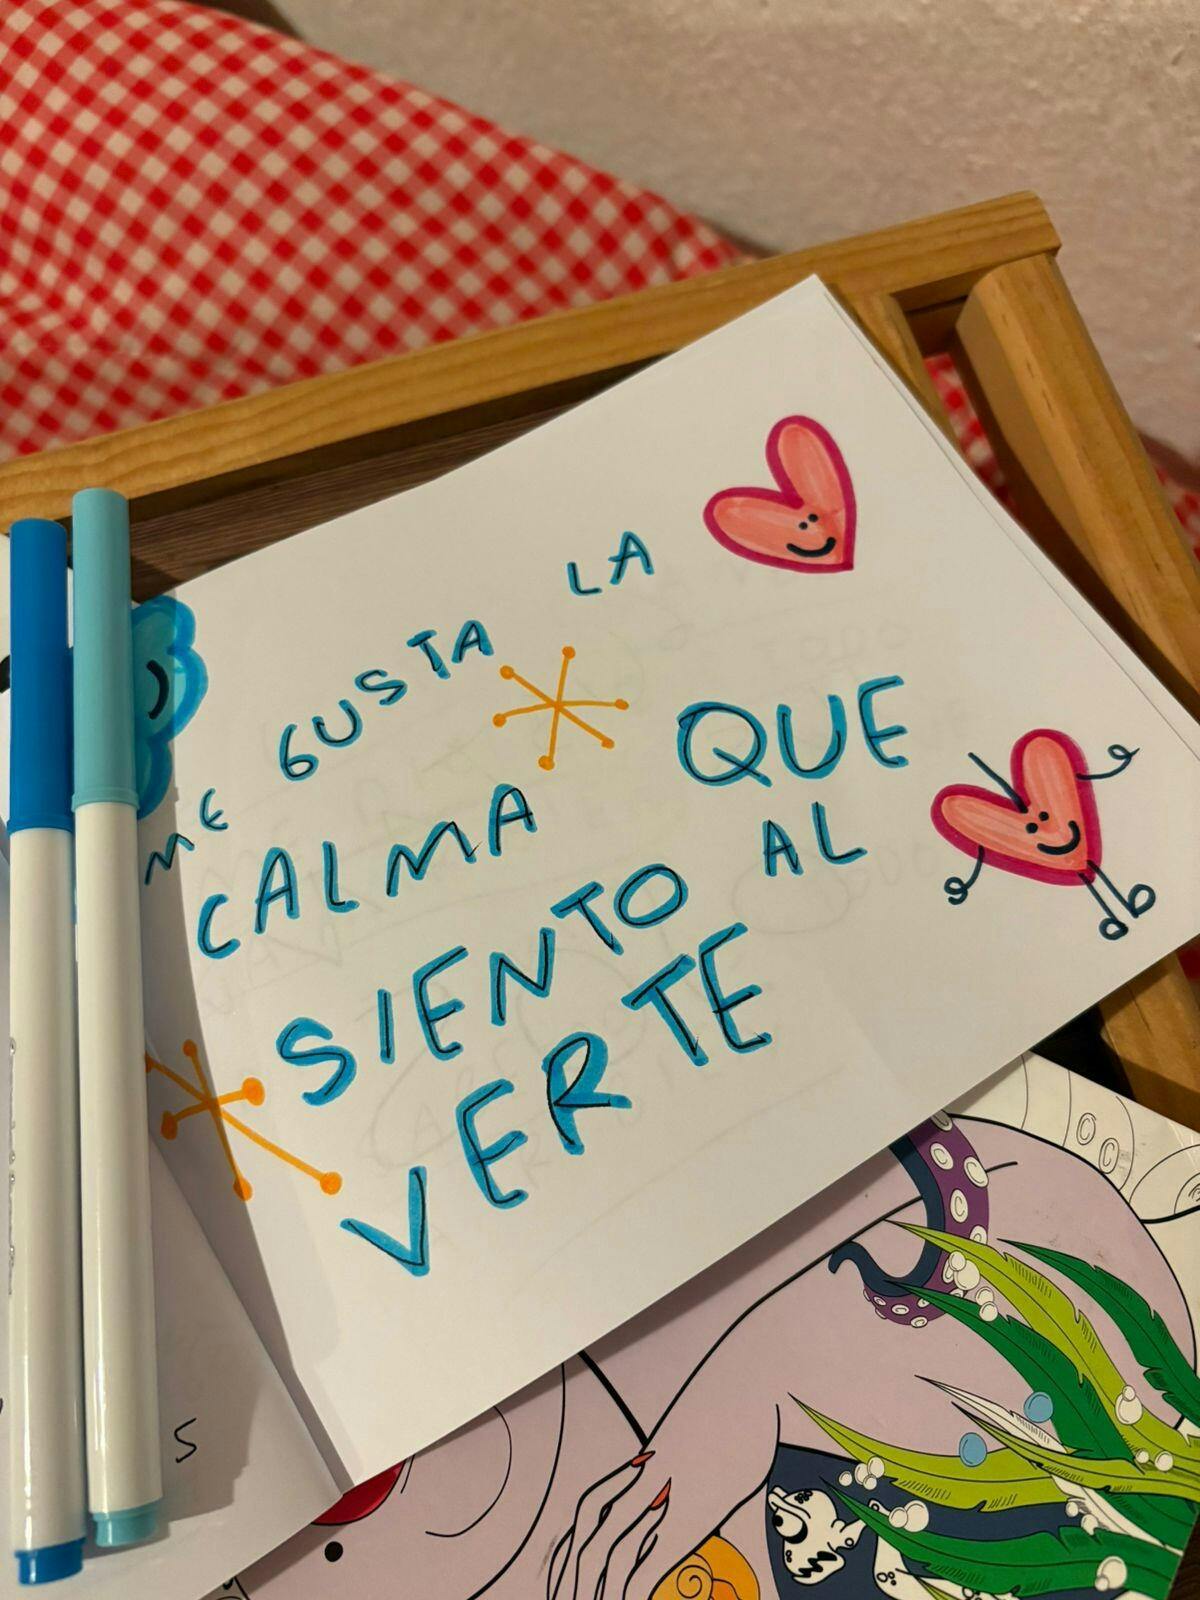 ME GUSTA LA
CALMA QUE
SIENTO AL
VERTE
S